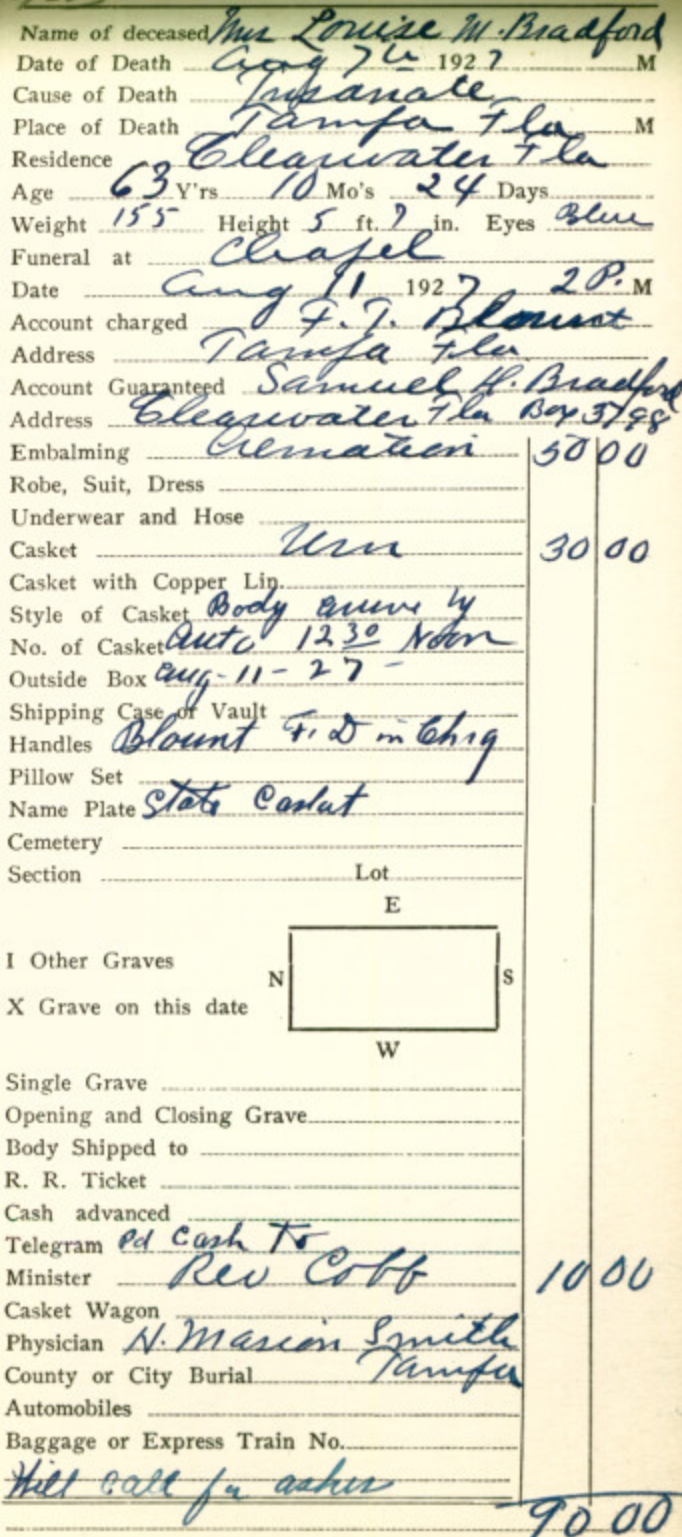 Name of deceased Mrs Louise M. Bradford
Date of Death Aug 7th 1927 M
Cause of Death
Place of Death Tampa Fla M
Residence Clearwater Fla
Age 63 Y'rs 10 Mo's 24 Days
Weight 155 Height 5 ft. 7 in. Eyes Blue
Funeral at Chapel
Date Aug 11 1927 2 P. M
Account charged F. T. Blount
Address Tampa Fla
Account Guaranteed Samuel H. Bradford
Address Clearwater Fla Box 3798
Embalming Cremation 50 00
Robe, Suit, Dress
Underwear and Hose
Casket Urn 30 00
Casket with Copper Lin.
Style of Casket Body arrive by
No. of Casket Auto 12 30 Noon
Outside Box Aug-11-27-
Shipping Case or Vault
Handles Blount F. D in Chrg
Pillow Set
Name Plate State Casket
Cemetery
Section Lot
E
I Other Graves
N S
X Grave on this date
W
Single Grave
Opening and Closing Grave
Body Shipped to
R. R. Ticket
Cash advanced
Telegram Pd Cash To
Minister Rev Cobb 10 00
Casket Wagon
Physician H. Marion Smith
County or City Burial Tampa
Automobiles
Baggage or Express Train No.
Will call for ashes
90 00